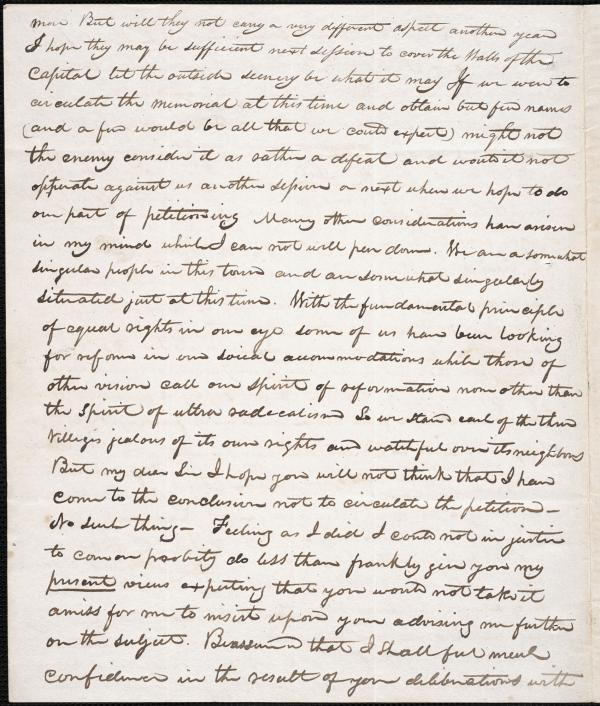 more But will they not carry a very different aspect another year
I hope they may be sufficient next session to cover the Walls of the
Capital let the outside scenery be what it may If we were to
circulate the memorial at this time and obtain but few names
(and a few would be all that we could expect) might not
the enemy consider it as rather a defeat and would it not
opperate against us another session or next when we hope to do
our part of petitioning Many other considerations have arisen
in my mind which I can not well pen down. We are a somewhat
singular people in this town and are somewhat singularly
situated just at this time. With the fundamental principle
of equal rights in our eye some of us have been looking
for reform in our social accommodations while those of
other vision call our spirit of reformation none other than
the Spirit of ultra radicalism So we stand each of the three
Villages jealous of its own rights and watchful over its neighbors
But my dear Sir I hope you will not think that I have
come to the conclusion not to circulate the petition –
No such thing – Feeling as I did I could not in justice
to common probity do less than frankly give you my
present views expecting that you would not take it
amiss for me to insist upon your advising me further
on the subject. Be assured that I shall feel much
confidence in the result of your deliberations with